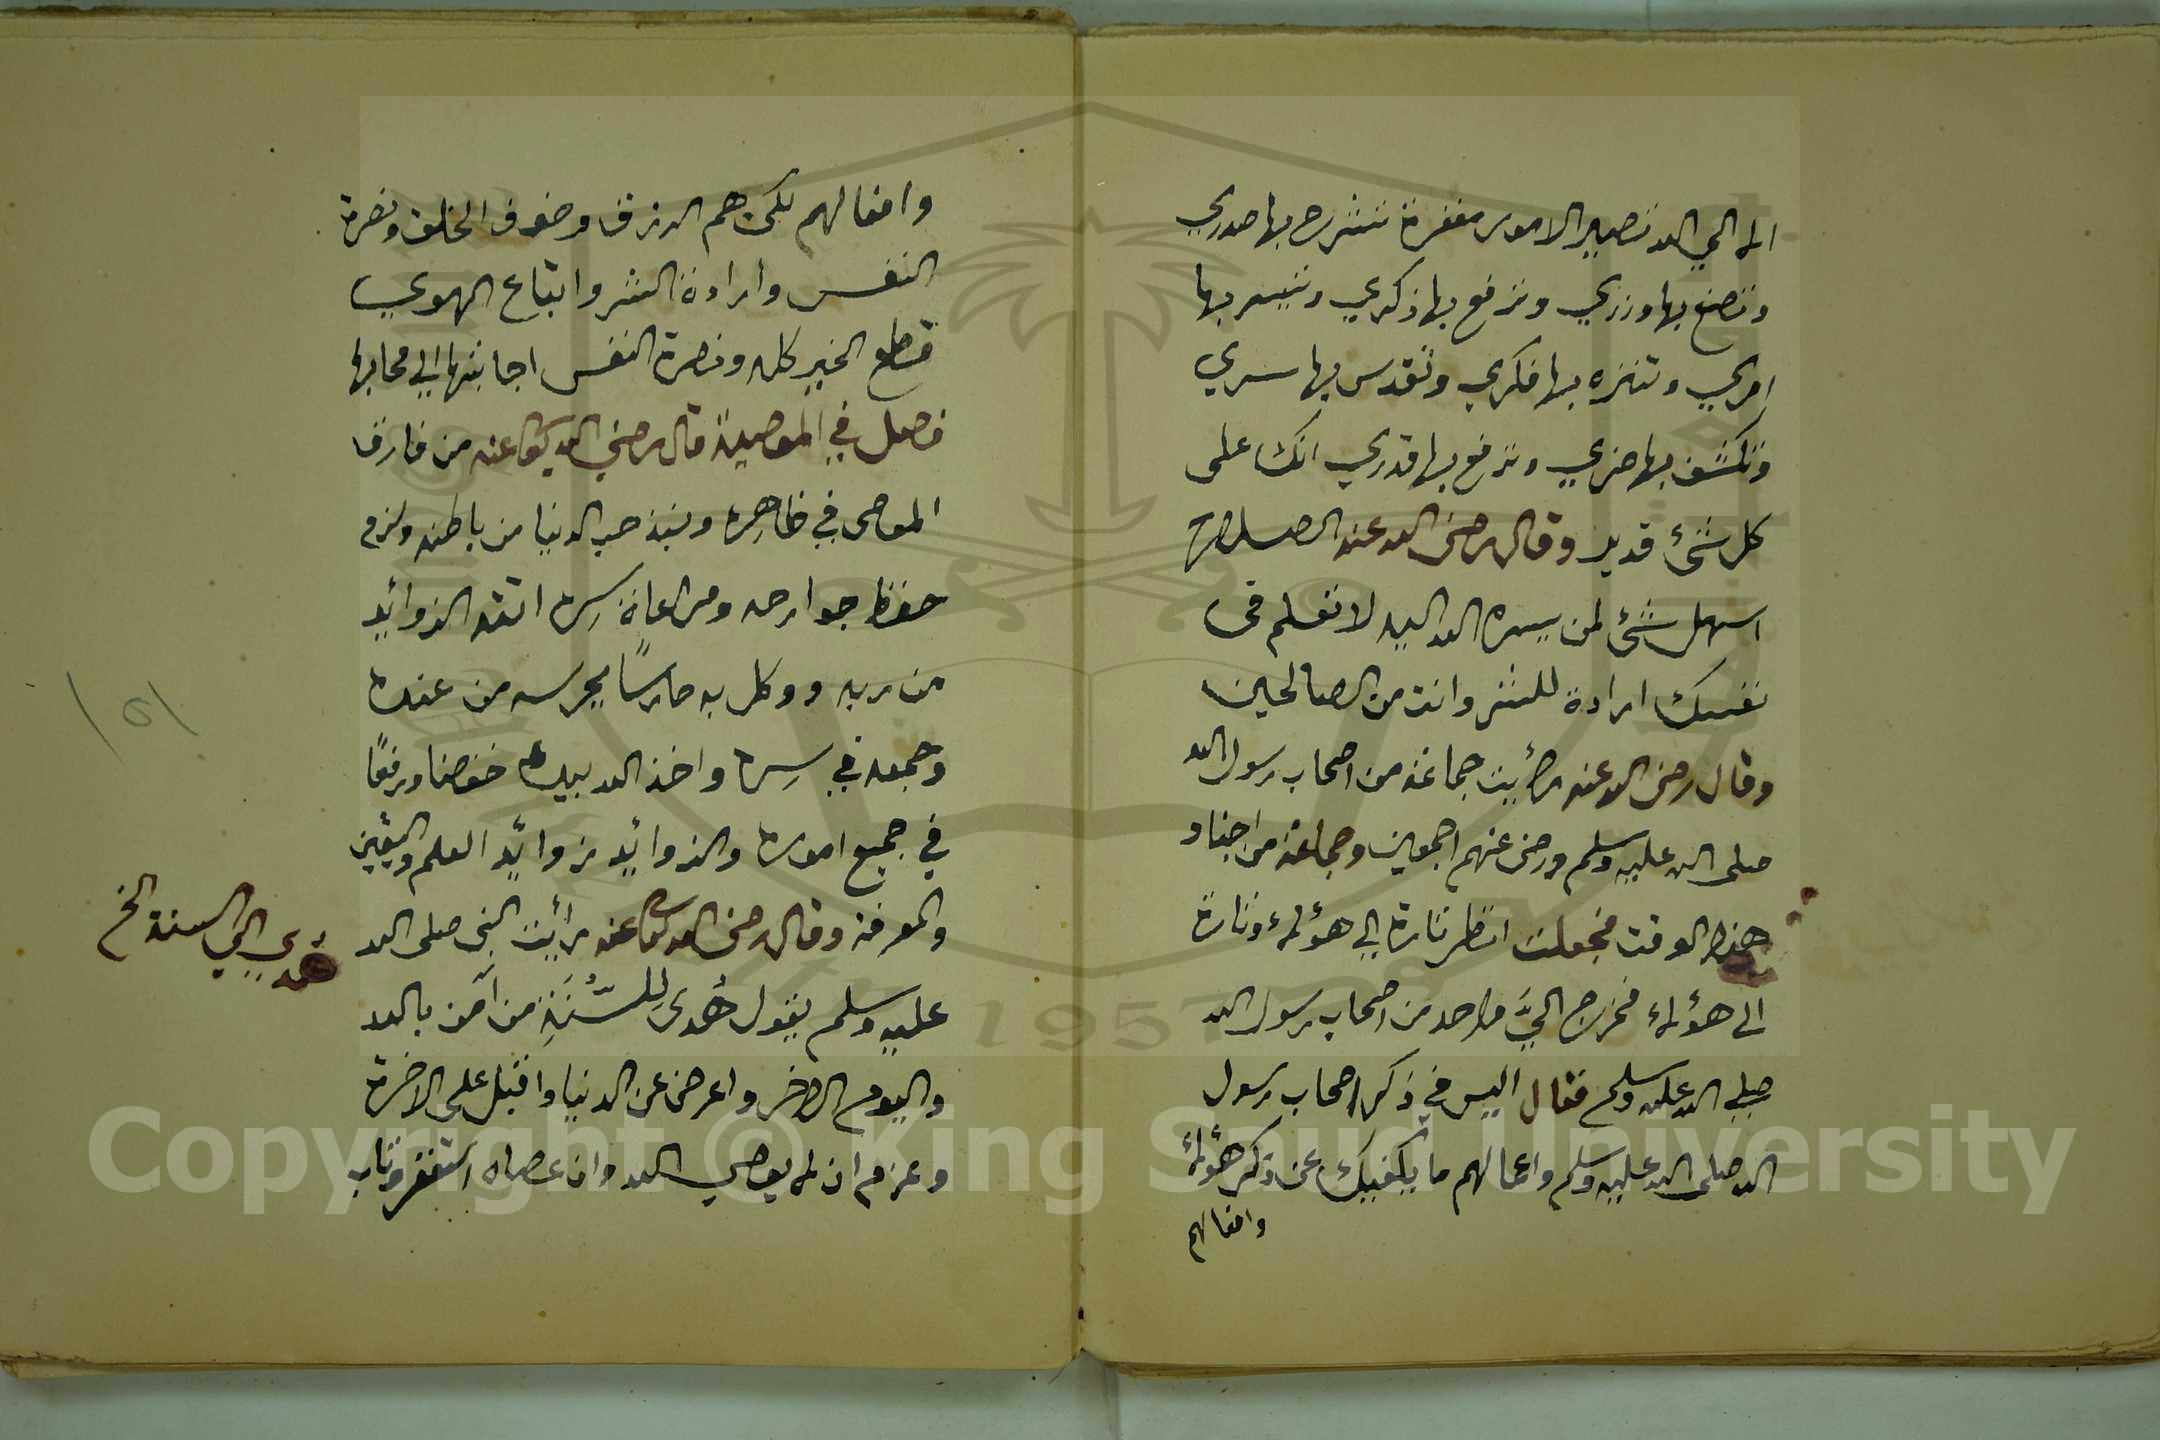 الا الي الله تصير الامور مغفرة تنشرح بها صدري
وتضع بها وزري وترفع بها ذكري وتيسر بها
امري وتنزه بها فكري وتقدس بها سري
وتكشف بها ضري وترفع بها قدري انك على
كل شئ قدير وقال رضى الله عنه الصلاح
اسهل شئ لمن يسره الله اليه لا تعلم فى
نفسك ارادة للشر وانت من الصالحين
وقال رضى الله عنه رأيت جماعة من اصحاب رسول الله
صلى الله عليه وسلم ورضى عنهم اجمعين وجماعة من اجناد
هذا الوقت فجعلت انظر تارة الي هؤلاء وتارة
الى هؤلاء فخرج اليَّ واحد من اصحاب رسول الله
صلي الله عليه وسلم فقال اليس في ذكر اصحاب رسول
الله صلى الله عليه وسلم واعمالهم ما يكفيك عن ذكر هؤلاء
وافعالهم
وافعالهم لكن هم الرزق وخوف الخلق ونصرة
النفس وارادة الشر واتباع الهوي
قطع الخير كله ونصرة النفس اجابتها الي محابها
فصل في الوصية قال رضي الله تعالى عنه من فارق
المعاصى في ظاهره ونبذ حب الدنيا من باطنه ولزم
حفظ جوارحه ومراعاة سره اتته الزوائد
من ربه ووكل به حارسًا يحرسه من عنده
وجمعه في سره واخذ الله بيده خفضا ورفعًا
في جميع اموره والزوائد زوائد العلم واليقين
والمعرفة وقال رضى الله تعالى عنه رأيت النبي صلى الله
عليه وسلم يقول هُدى لِلسُّنَّةِ من آمن بالله
واليوم الاخر واعرض عن الدنيا واقبل على الاخرة
وعزم ان لا يعصي الله وان عصاه استغفر وتاب
هدي الي السنة الخ
Copyright © King Saud University
1957